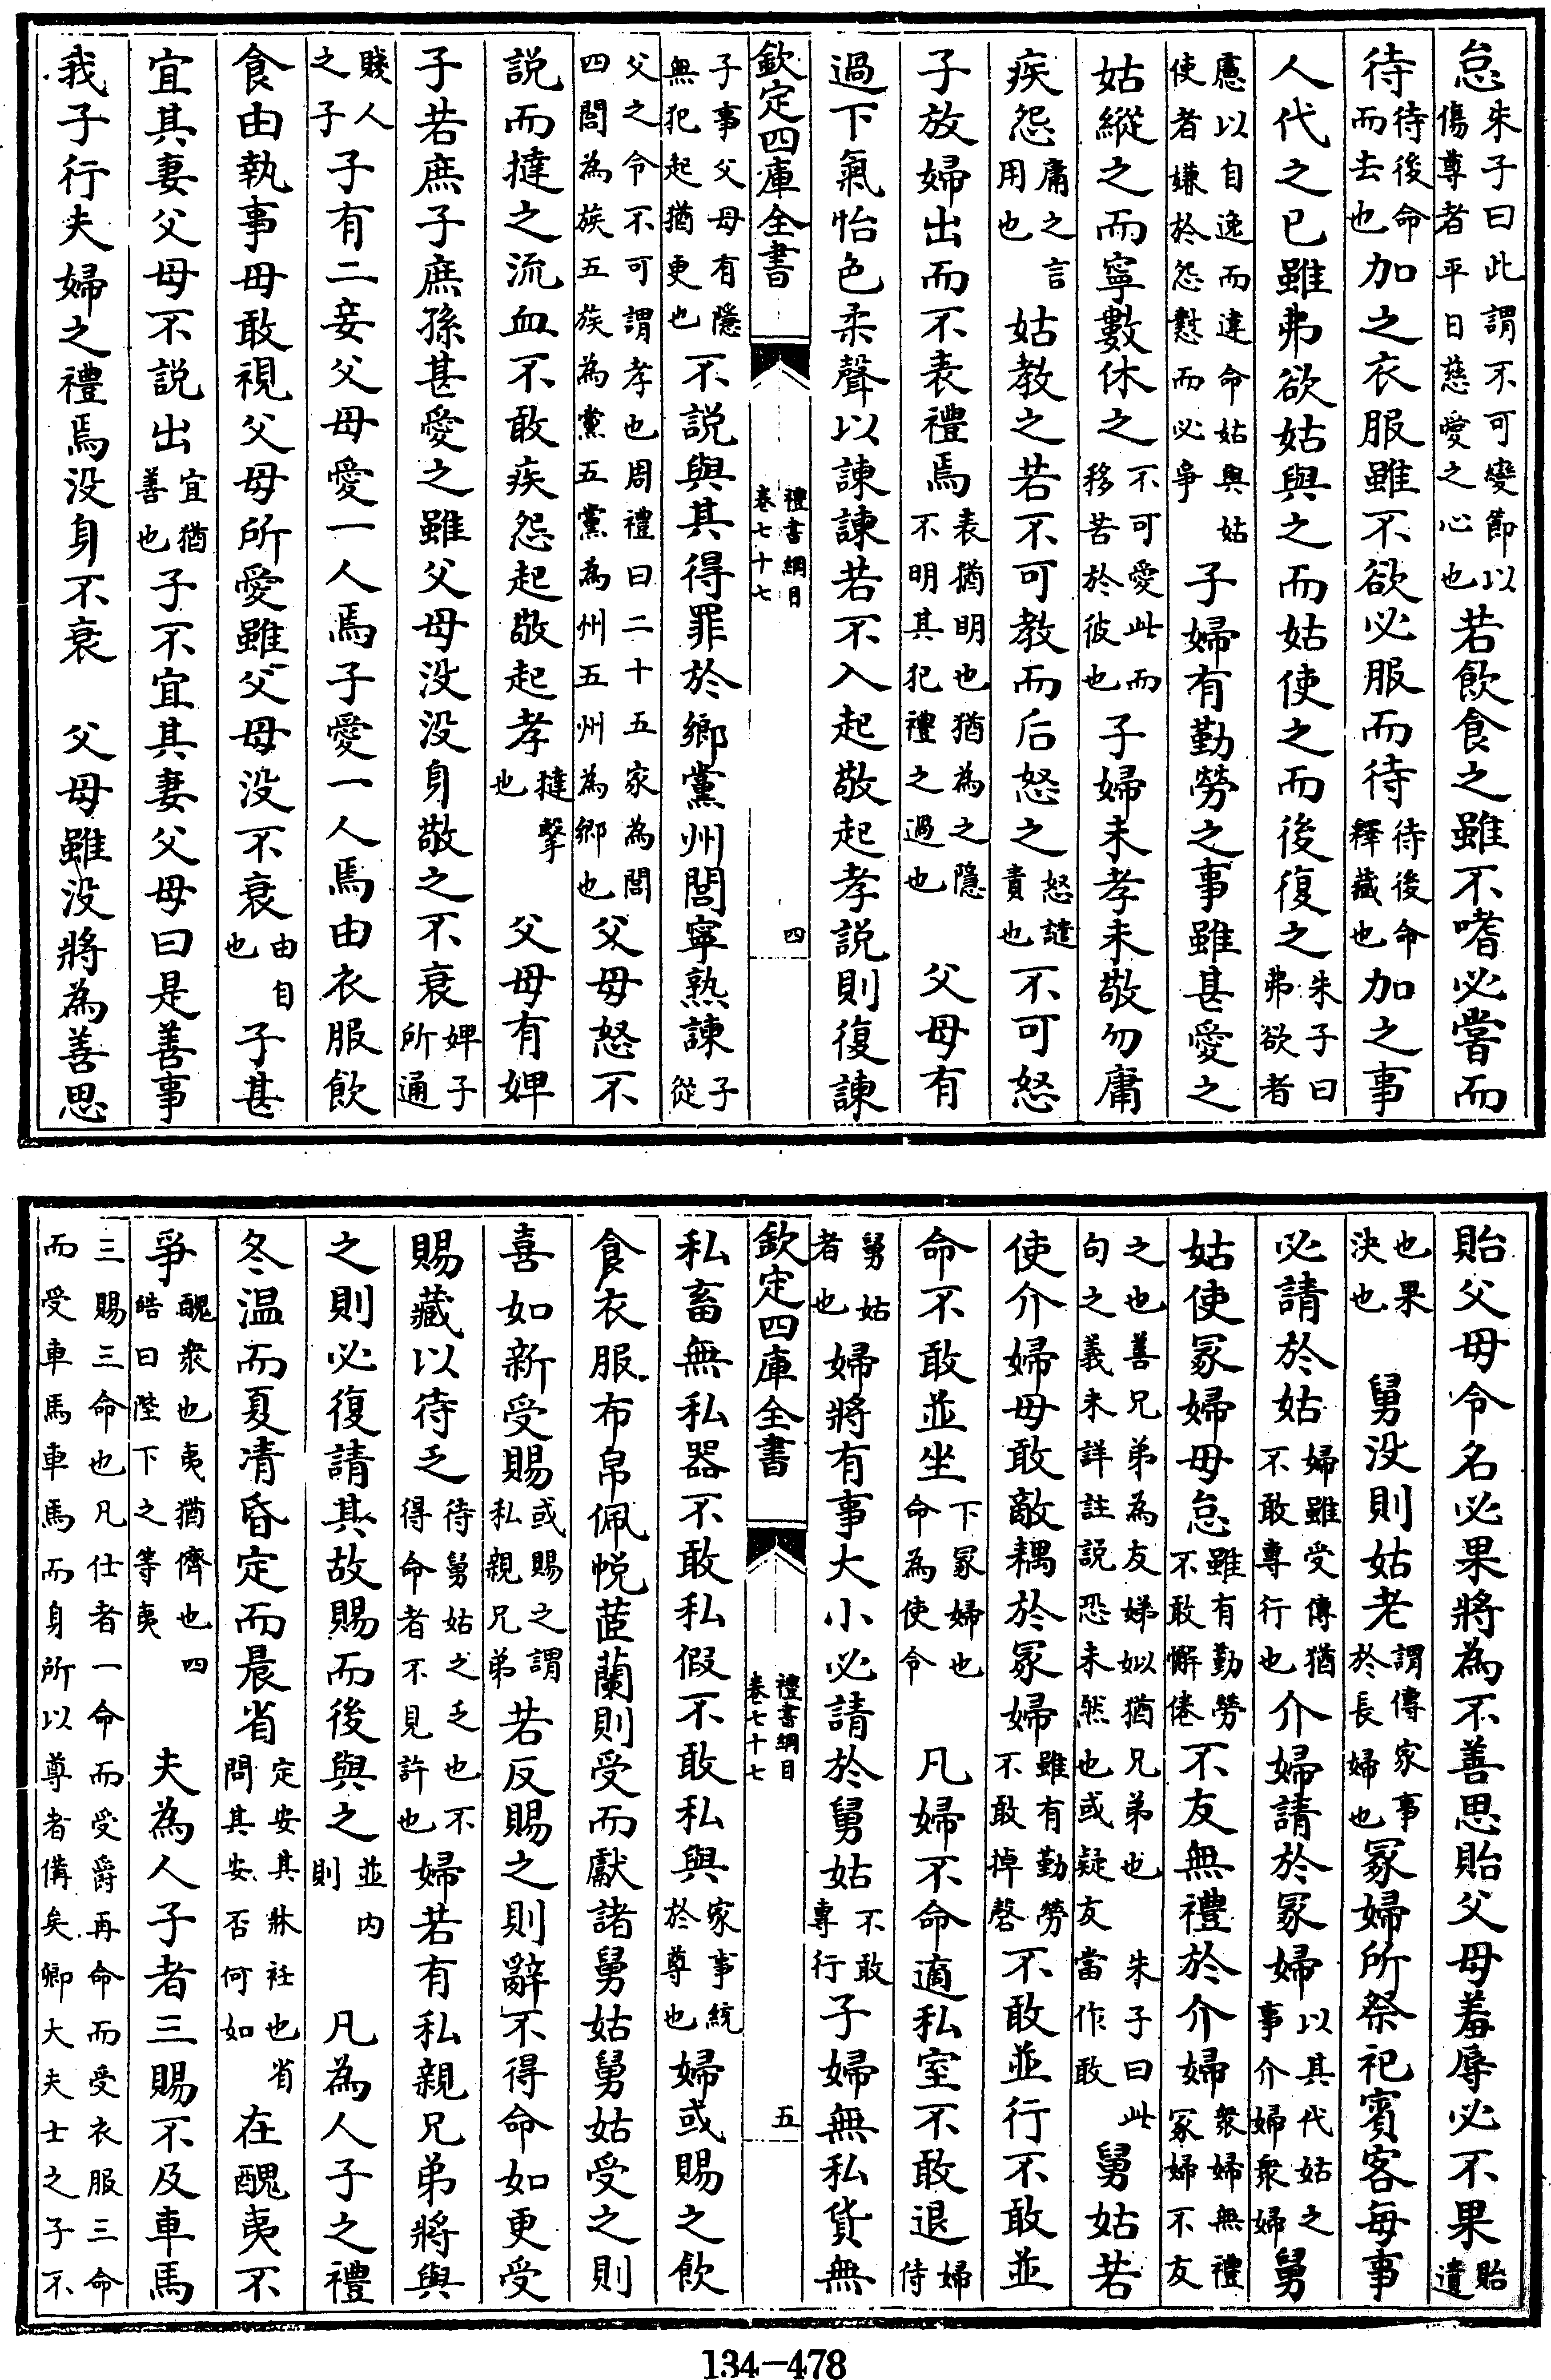 怠朱子曰此謂不可變節以傷尊者平日慈愛之心也若飲食之雖不嗜必嘗而
待待後命而去也加之衣服雖不欲必服而待待後命釋藏也加之事
人代之已雖弗欲姑與之而姑使之而後復之朱子曰弗欲者
慮以自逸而違命姑與姑使者嫌於怨懟而必爭子婦有勤勞之事雖甚愛之
姑縱之而寧數休之不可愛此而移苦於彼也子婦未孝未敬勿庸
疾怨庸之言用也姑教之若不可教而后怒之怒譴責也不可怒
子放婦出而不表禮焉表猶明也猶為之隱不明其犯禮之過也 父母有
過下氣怡色柔聲以諫諫若不入起敬起孝説則復諫
欽定四庫全書 禮書綱目卷七十七 四
子事父母有隱無犯起猶更也不説與其得罪於鄉黨州閭寧熟諫子從
父之令不可謂孝也周禮曰二十五家為閭四閭為族五族為黨五黨為州五州為鄉也父母怒不
説而撻之流血不敢疾怨起敬起孝撻擊也 父母有婢
子若庶子庶孫甚愛之雖父母没没身敬之不衰婢子所通
賤人之子子有二妾父母愛一人焉子愛一人焉由衣服飲
食由執事毋敢視父母所愛雖父母没不衰由自也子甚
宜其妻父母不説出宜猶善也子不宜其妻父母曰是善事
我子行夫婦之禮焉没身不衰 父母雖没將為善思
貽父母令名必果將為不善思貽父母羞辱必不果貽遺
也果決也 舅没則姑老謂傳家事於長婦也冢婦所祭祀賓客每事
必請於姑婦雖受傳猶不敢專行也介婦請於冢婦以其代姑之事介婦衆婦舅
姑使冢婦毋怠雖有勤勞不敢懈倦不友無禮於介婦衆婦無禮冢婦不友
之也善兄弟為友娣姒猶兄弟也 朱子曰此句之義未詳註説恐未然也或疑友當作敢舅姑若
使介婦毋敢敵耦於冢婦雖有勤勞不敢掉磬不敢並行不敢並
命不敢並坐下冢婦也命為使令 凡婦不命適私室不敢退婦侍
舅姑者也婦將有事大小必請於舅姑不敢專行子婦無私貨無
欽定四庫全書 禮書綱目卷七十七 五
私畜無私器不敢私假不敢私與家事統於尊也婦或賜之飲
食衣服布帛佩帨茝蘭則受而獻諸舅姑舅姑受之則
喜如新受賜或賜之謂私親兄弟若反賜之則辭不得命如更受
賜藏以待乏待舅姑之乏也不得命者不見許也婦若有私親兄弟將與
之則必復請其故賜而後與之並内則 凡為人子之禮
冬温而夏凊昏定而晨省定安其牀衽也省問其安否何如在醜夷不
爭醜衆也夷猶儕也四皓曰陛下之等夷 夫為人子者三賜不及車馬
三賜三命也凡仕者一命而受爵再命而受衣服三命而受車馬車馬而身所以尊者備矣卿大夫士之子不
134—478